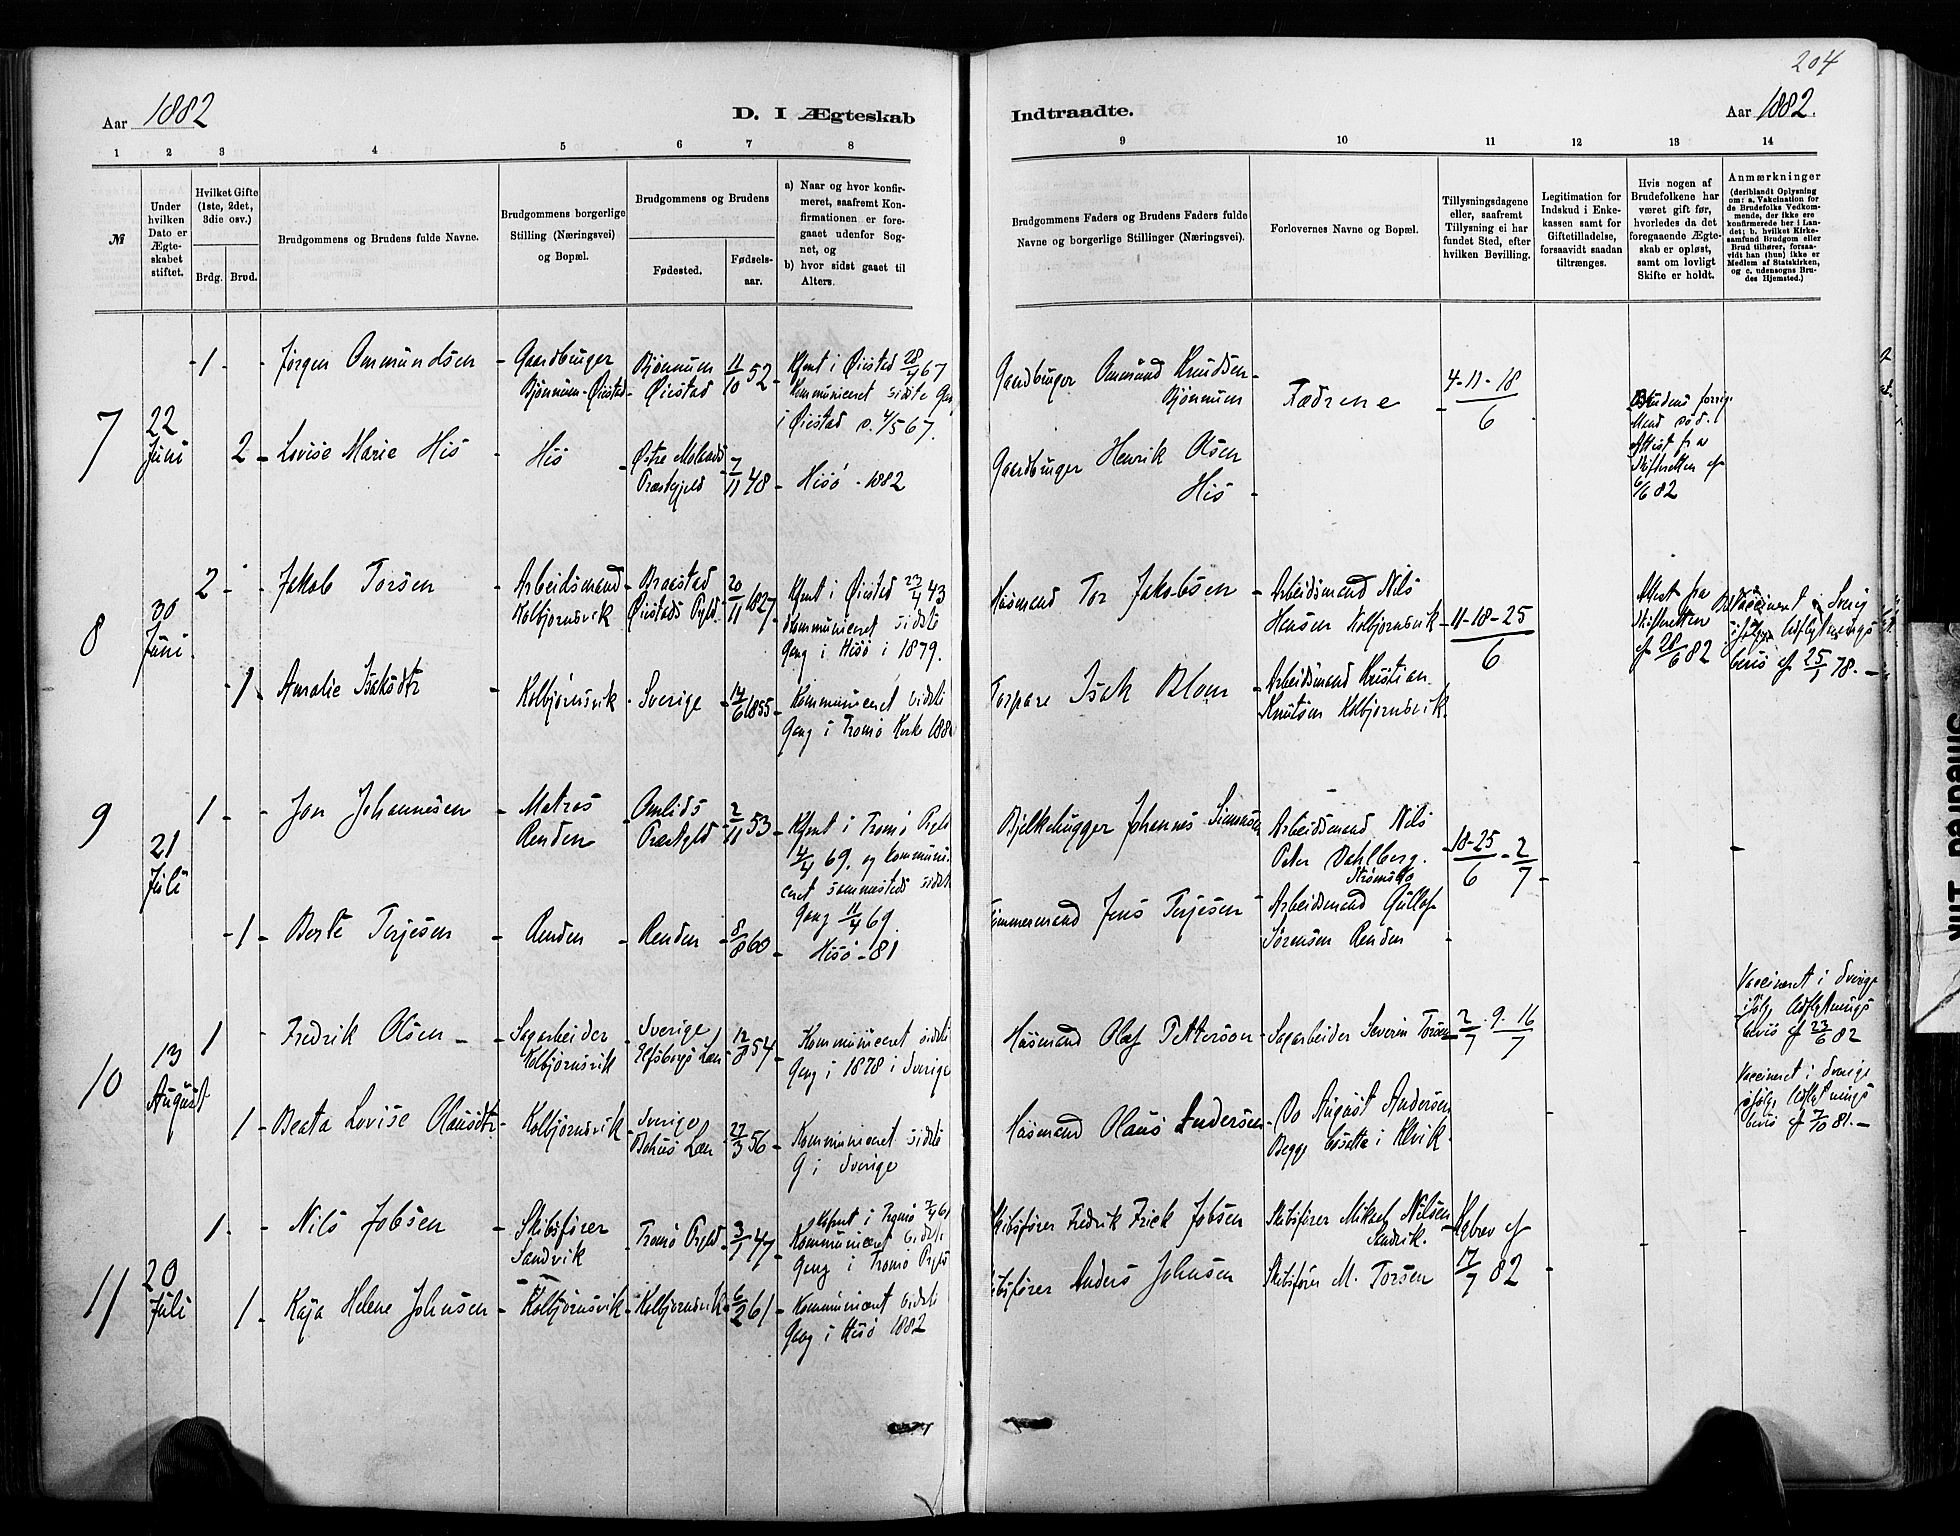 204
Aar 1882
D. I Ægteskab
Indtraadte.
Aar 1882.
1 2 3 4 5 6 7 8
9 10 11 12 13 14
№
Under hvilken Dato er Ægteskabet stiftet.
Hvilket Gifte (1ste, 2det, 3die osv.)
Brdg. Brud.
Brudgommens og Brudens fulde Navne.
Brudgommens borgerlige Stilling (Næringsvei) og Bopæl.
Brudgommens og Brudens
Fødested.
Fødselsaar.
a) Naar og hvor konfirmeret, saafremt Konfirmationen er foregaaet udenfor Sognet, og
b) hvor sidst gaaet til Alters.
Brudgommens Faders og Brudens Faders fulde Navne og borgerlige Stillinger (Næringsvei).
Forlovernes Navne og Bopæl.
Tillysningsdagene eller, saafremt Tillysning ei har fundet Sted, efter hvilken Bevilling.
Legitimation for Indskud i Enkekassen samt for Giftetilladelse, forsaavidt saadan tiltrænges.
Hvis nogen af Brudefolkene har været gift før, hvorledes da det foregaaende Ægteskab er opløst, samt om lovligt Skifte er holdt.
Anmærkninger (deriblandt Oplysning om: a. Vakcination for de Brudefolks Vedkommende, der ikke ere konfirmerede her i Landet; b. hvilket Kirkesamfund Brudgom eller Brud tilhører, forsaavidt han (hun) ikke er Medlem af Statskirken, og c. udensogns Brudes Hjemsted.)
7
22 Juni
1 - Jørgen Ommundsen - Gaardbruger Bjønnum - Øiestad
Bjønnum Øiestad 11/10 52
Kfmt i Øiestad 28/4 67
Kommuniceret sidste Gang
i Øiestad d. 4/5 67.
Gaardbruger Ommund Knudsen Bjønnum
Fædrene
4-11-18/6
Brudens forrige
Mand død.
Attest fra
Skifteretten af
6/6 82
2 - Lovise Marie His - His
Østre Molands Præstegjeld 7/11 48 - Hisø - 1882
Gaardbruger Henrik Olsen His
8
30 Juni.
2 - Jakob Torsen - Arbeidsmand Kolbjørnsvik
Braastad Øiestads Prgld. 20/11 1827
Kfmt i Øiestad 23/4 43
Kommuniceret sidste
Gang i Hisø i 1879.
Husmand Tor Jakobsen
Arbeidsmand Nils
Hensen Kolbjørnsvik
11-18-25/6
Attest fra
Skifteretten
af 28/6 82
Vaccineret i Sverig
ifølge Udflytnings
bevis af 25/1 78.
1 - Amalie Isaksdtr - Kolbjørnsvik - Sverige - 14/6 1855
Kommuniceret sidste
Gang i Tromø Kirke 188
Torpare Isak Blom
Arbeidsmand Kristian
Knutsen Kolbjørnsvik.
9
21 Juli
1 - Jon Johannesen - Matros Renden
Omlids Præstgjld 2/11 53
Kfmt i Tromø Prgld
4/4 69. og kommuni-
ceret sammesteds sidste
Gang 11/4 69.
Bjelkehugger Johannes Simonsen
Arbeidsmand Nils
Peter Dahlberg.
Strømsbo
18-25/6 - 2/7
1 - Berte Terjesen - Renden - Renden - 8/8 60 - Hisø - 81
Tømmermand Jens Terjesen
Arbeidsmand Gullof
Sørensen Renden
10
13 August
1 Fredrik Olsen - Sagarbeider Kolbjørnsvik
Sverige Elfsborgs Læn 12/8 54
Kommuniceret sidste
Gang i 1878 i Sverige
Husmand Olof Pettersson - Sagarbeider Severin Torsen
2/7 - 9 - 16/7
Vaccineret i Sverige
ifølg Udflytnings
bevis af 23/6 82
1 - Beata Lovise Olausdtr. Kolbjørnsvik
Sverige Bohus Læn 27/3 56
Kommuniceret sidste
G i Sverige
Husmand Olaus Andersen - Do August Andersen
Begge bosatte i Kolvik
Vaccineret i Sverige
ifølg Udflytnings
bevis af 7/10 81.
11
20 Juli
1 - Nils Jobsen - Skibsfører Sandvik
Tromø Prgld 3/1 47
Kfmt i Tromø
Kommuniceret sidste
Gang i Tromø Prgld
Skibsfører Fredrik Frick Jobsen
Skibsfører Mikael Nilsen
Sandvik.
Kgbrev af
17/7 82
1 - Kaja Helene Johnsen - Kolbjørnsvik - Kolbjørnsvik 6/2 61
Kommuniceret sidste
Gang i Hisø 1882
Skibsfører Anders Johnsen
Skibsfører M. Torsen